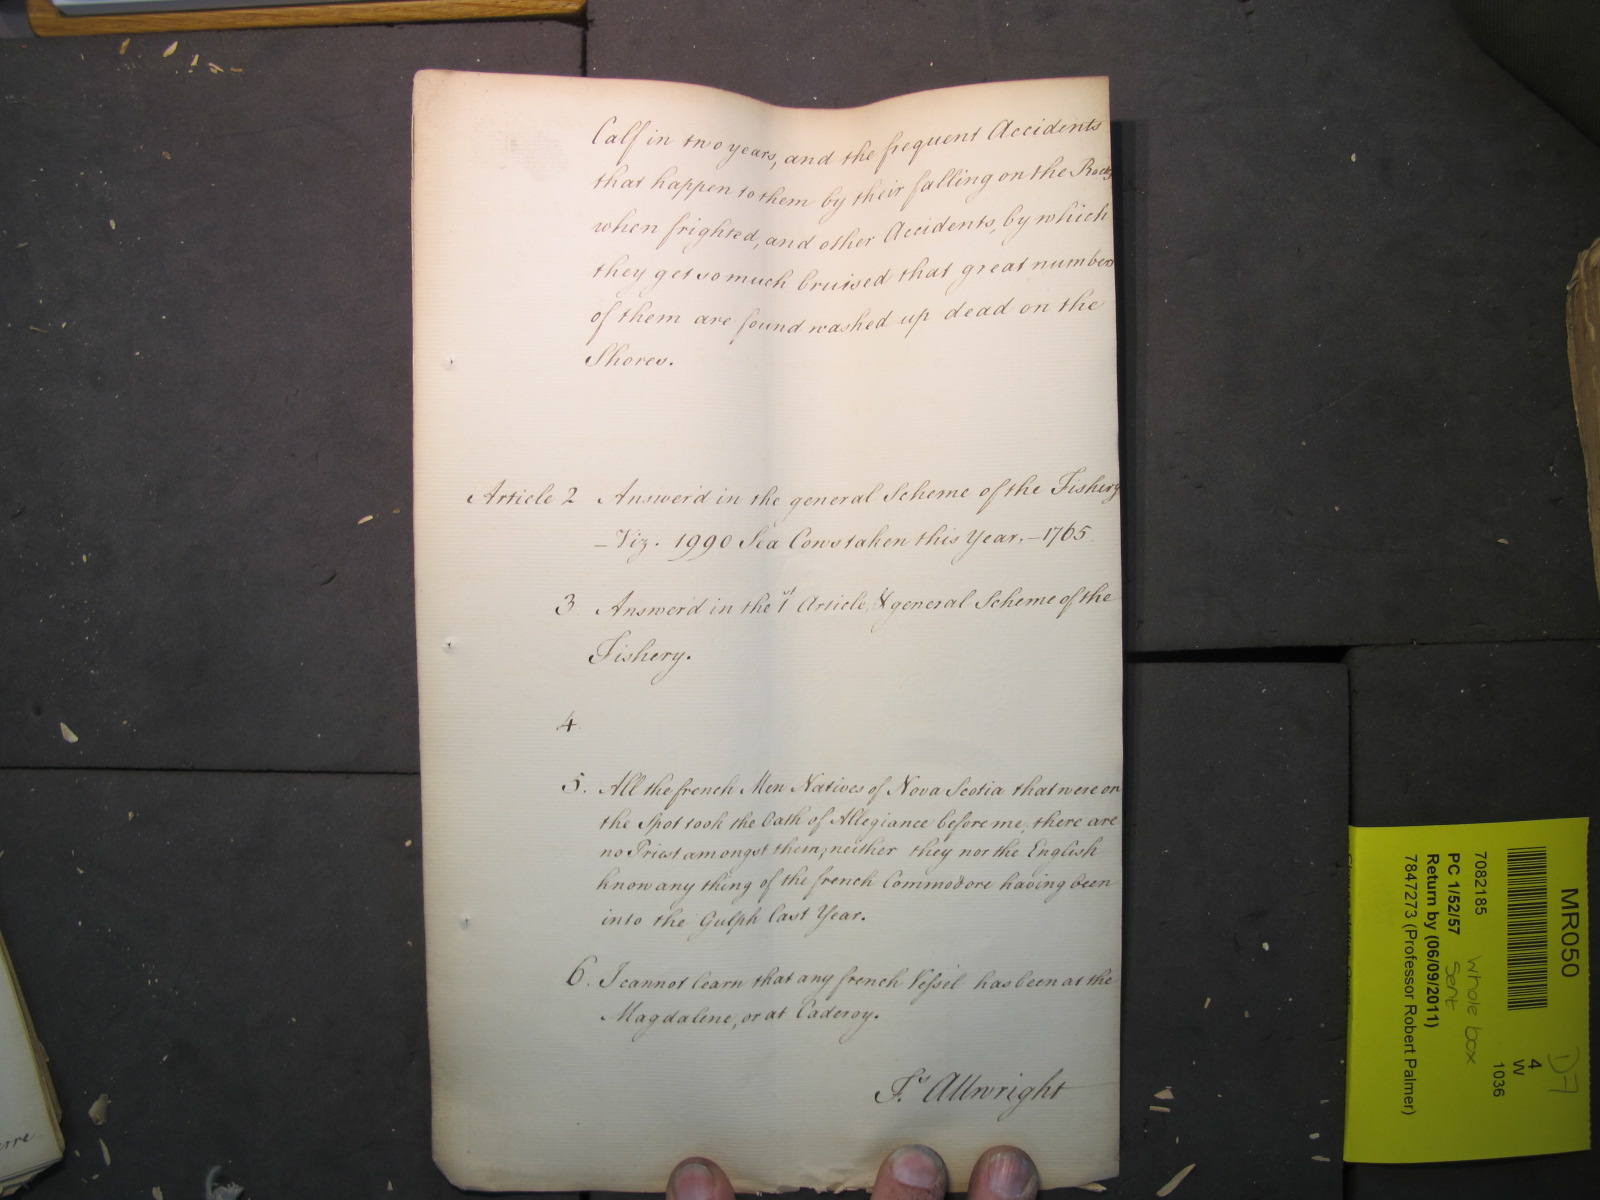 Calf in two years, and the frequent Accidents
that happen to them by their falling on the Rocks
when frighted, and other Accidents, by which
they get so much bruised that great numbers
of them are found washed up dead on the
Shores.
Article 2 Answer'd in the general Scheme of the Fishery
– Viz. 1990 Sea Cows taken this Year, – 1765
3 Answer'd in the 1st Article, & general Scheme of the
Fishery.
4
5. All the french Men Natives of Nova Scotia that were on
the Spot took the Oath of Allegiance before me, there are
no Priest amongst them; neither they nor the English
know any thing of the french Commodore having been
into the Gulph last Year.
6. I cannot learn that any french Vessel has been at the
Magdalene, or at Caderoy.
Fs. Allwright
MR050
7082185
PC 1/52/57
Return by (06/09/2011)
7847273 (Professor Robert Palmer)
Whole box
sent
4
W
1036
D7